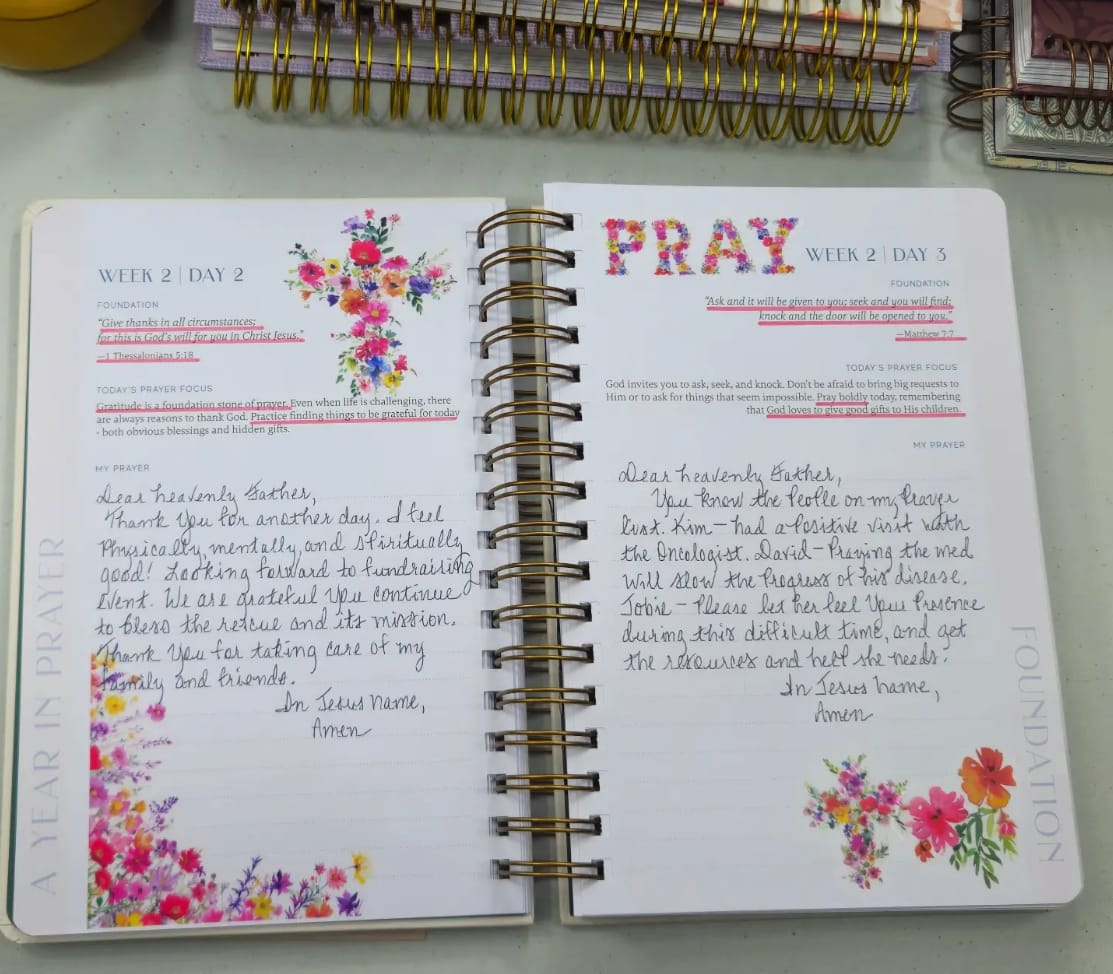 WEEK 2 | DAY 2
FOUNDATION
"Give thanks in all circumstances;
for this is God's will for you in Christ Jesus."
—1 Thessalonians 5:18
TODAY'S PRAYER FOCUS
Gratitude is a foundation stone of prayer. Even when life is challenging, there
are always reasons to thank God. Practice finding things to be grateful for today
- both obvious blessings and hidden gifts.
MY PRAYER
Dear heavenly Father,
Thank You for another day. I feel
Physically, mentally, and spiritually
good! Looking forward to fundraising
event. We are grateful You continue
to bless the rescue and its mission.
Thank You for taking care of my
family and friends.
In Jesus name,
Amen
A YEAR IN PRAYER
PRAY
WEEK 2 | DAY 3
FOUNDATION
"Ask and it will be given to you; seek and you will find;
knock and the door will be opened to you."
—Matthew 7:7
TODAY'S PRAYER FOCUS
God invites you to ask, seek, and knock. Don't be afraid to bring big requests to
Him or to ask for things that seem impossible. Pray boldly today, remembering
that God loves to give good gifts to His children.
MY PRAYER
Dear heavenly Father,
You know the People on my Prayer
list. Kim - had a Positive visit with
the Oncologist. David - Praying the med
will slow the Progress of his disease.
Jobie - Please let her feel Your Presence
during this difficult time, and get
the resources and help she needs.
In Jesus name,
Amen
FOUNDATION